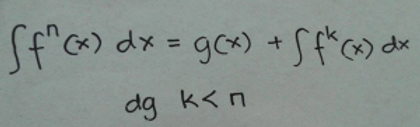 ∫fⁿ(x) dx = g(x) + ∫fᵏ(x) dx
dg k < n